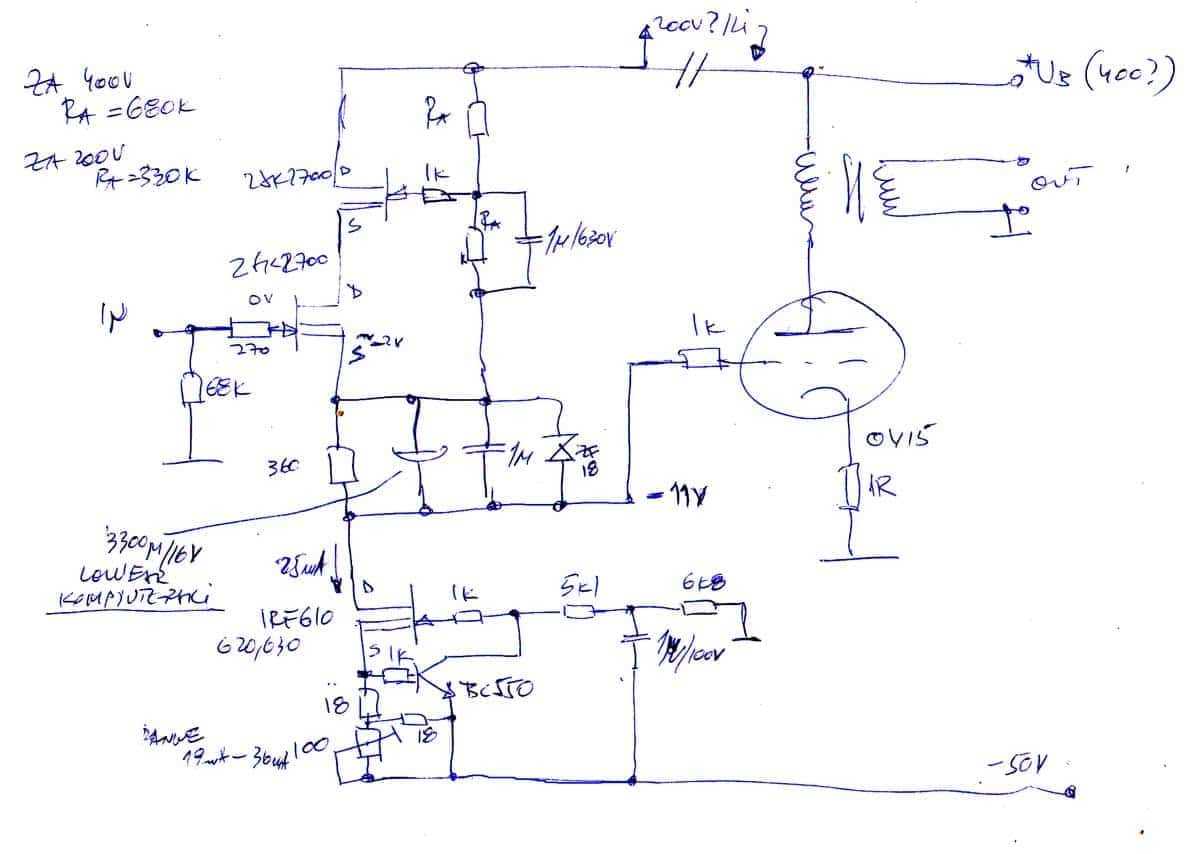 200V?/Li
ZA 400V
RA = 680K
ZA 200V
RA = 330K
*UB (400?)
RA
2SK2700
D
1K
S
RA
1µ/630V
OUT
2SK2700
D
IN
0V
270
S ≈-2V
1K
68K
360
1M
ZF
18
0V15
1R
-11V
3300M/16V
LOWESR
25mA
D
1K
5K1
6K8
IRF610
620,630
S
1K
/100V
BC550
18
18
19mA-36mA
100
-50V